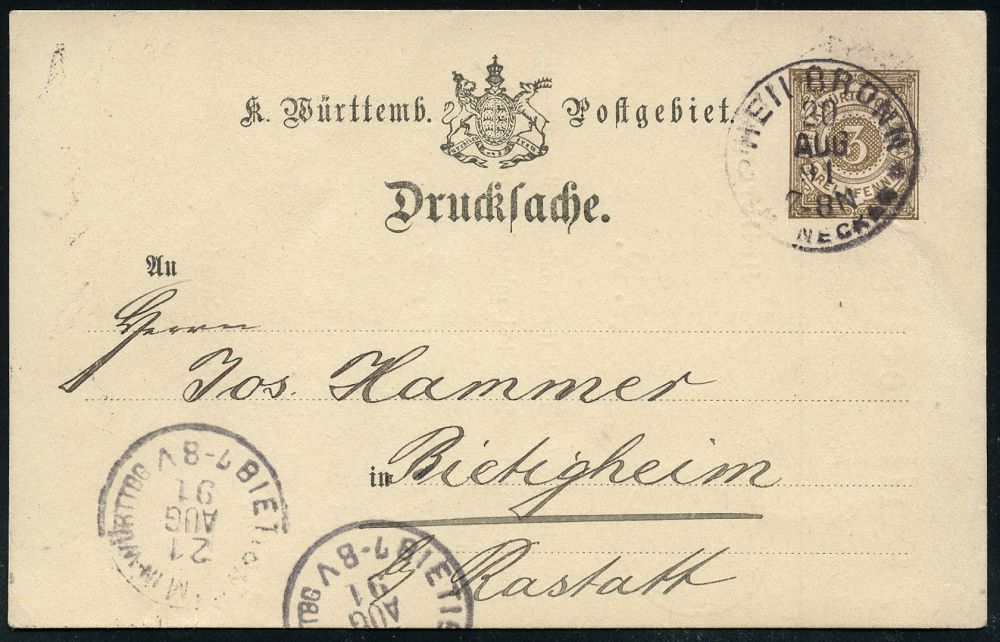 K. Württemb. Postgebiet.
Drucksache.
HEILBRONN
20
AUG
91
7-8N
NECKAR
3
DREI PFENNIG
An
Herrn
Jos. Hammer
in Bietigheim
b/ Rastatt
BIETIGHEIM IN WÜRTTBG
21
AUG
91
7-8V
BIETIG
AUG
91
7-8V
TTBG